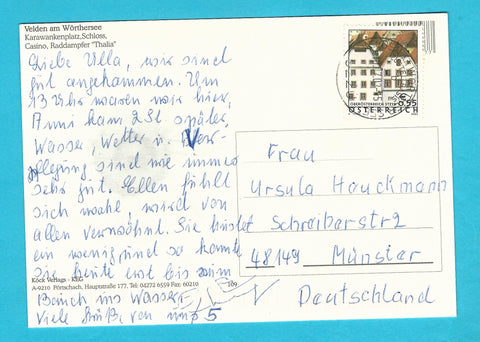 Velden am Wörthersee
Karawankenplatz, Schloss,
Casino, Raddampfer "Thalia"
Liebe Ulla, wir sind
gut angekommen. Um
13 Uhr waren wir hier,
Anni kam 2 St später,
Wasser, Wetter u. Ver-
pflegung sind wie immer
sehr gut. Ellen fühlt
sich wohl, wird von
allen verwöhnt. Sie hustet
ein wenig und so konnte
sie heute erst bis zum
Bauch ins Wasser,
Viele Grüße, von uns 5
Köck Verlags - KEG
A-9210 Pörtschach, Hauptstraße 177, Tel: 04272 6559 Fax: 60210
109
€ 0,55
OBERÖSTERREICH STEYR
ÖSTERREICH
Frau
Ursula Hauckmann
Schreiberstr 2
48149 Münster
Deutschland